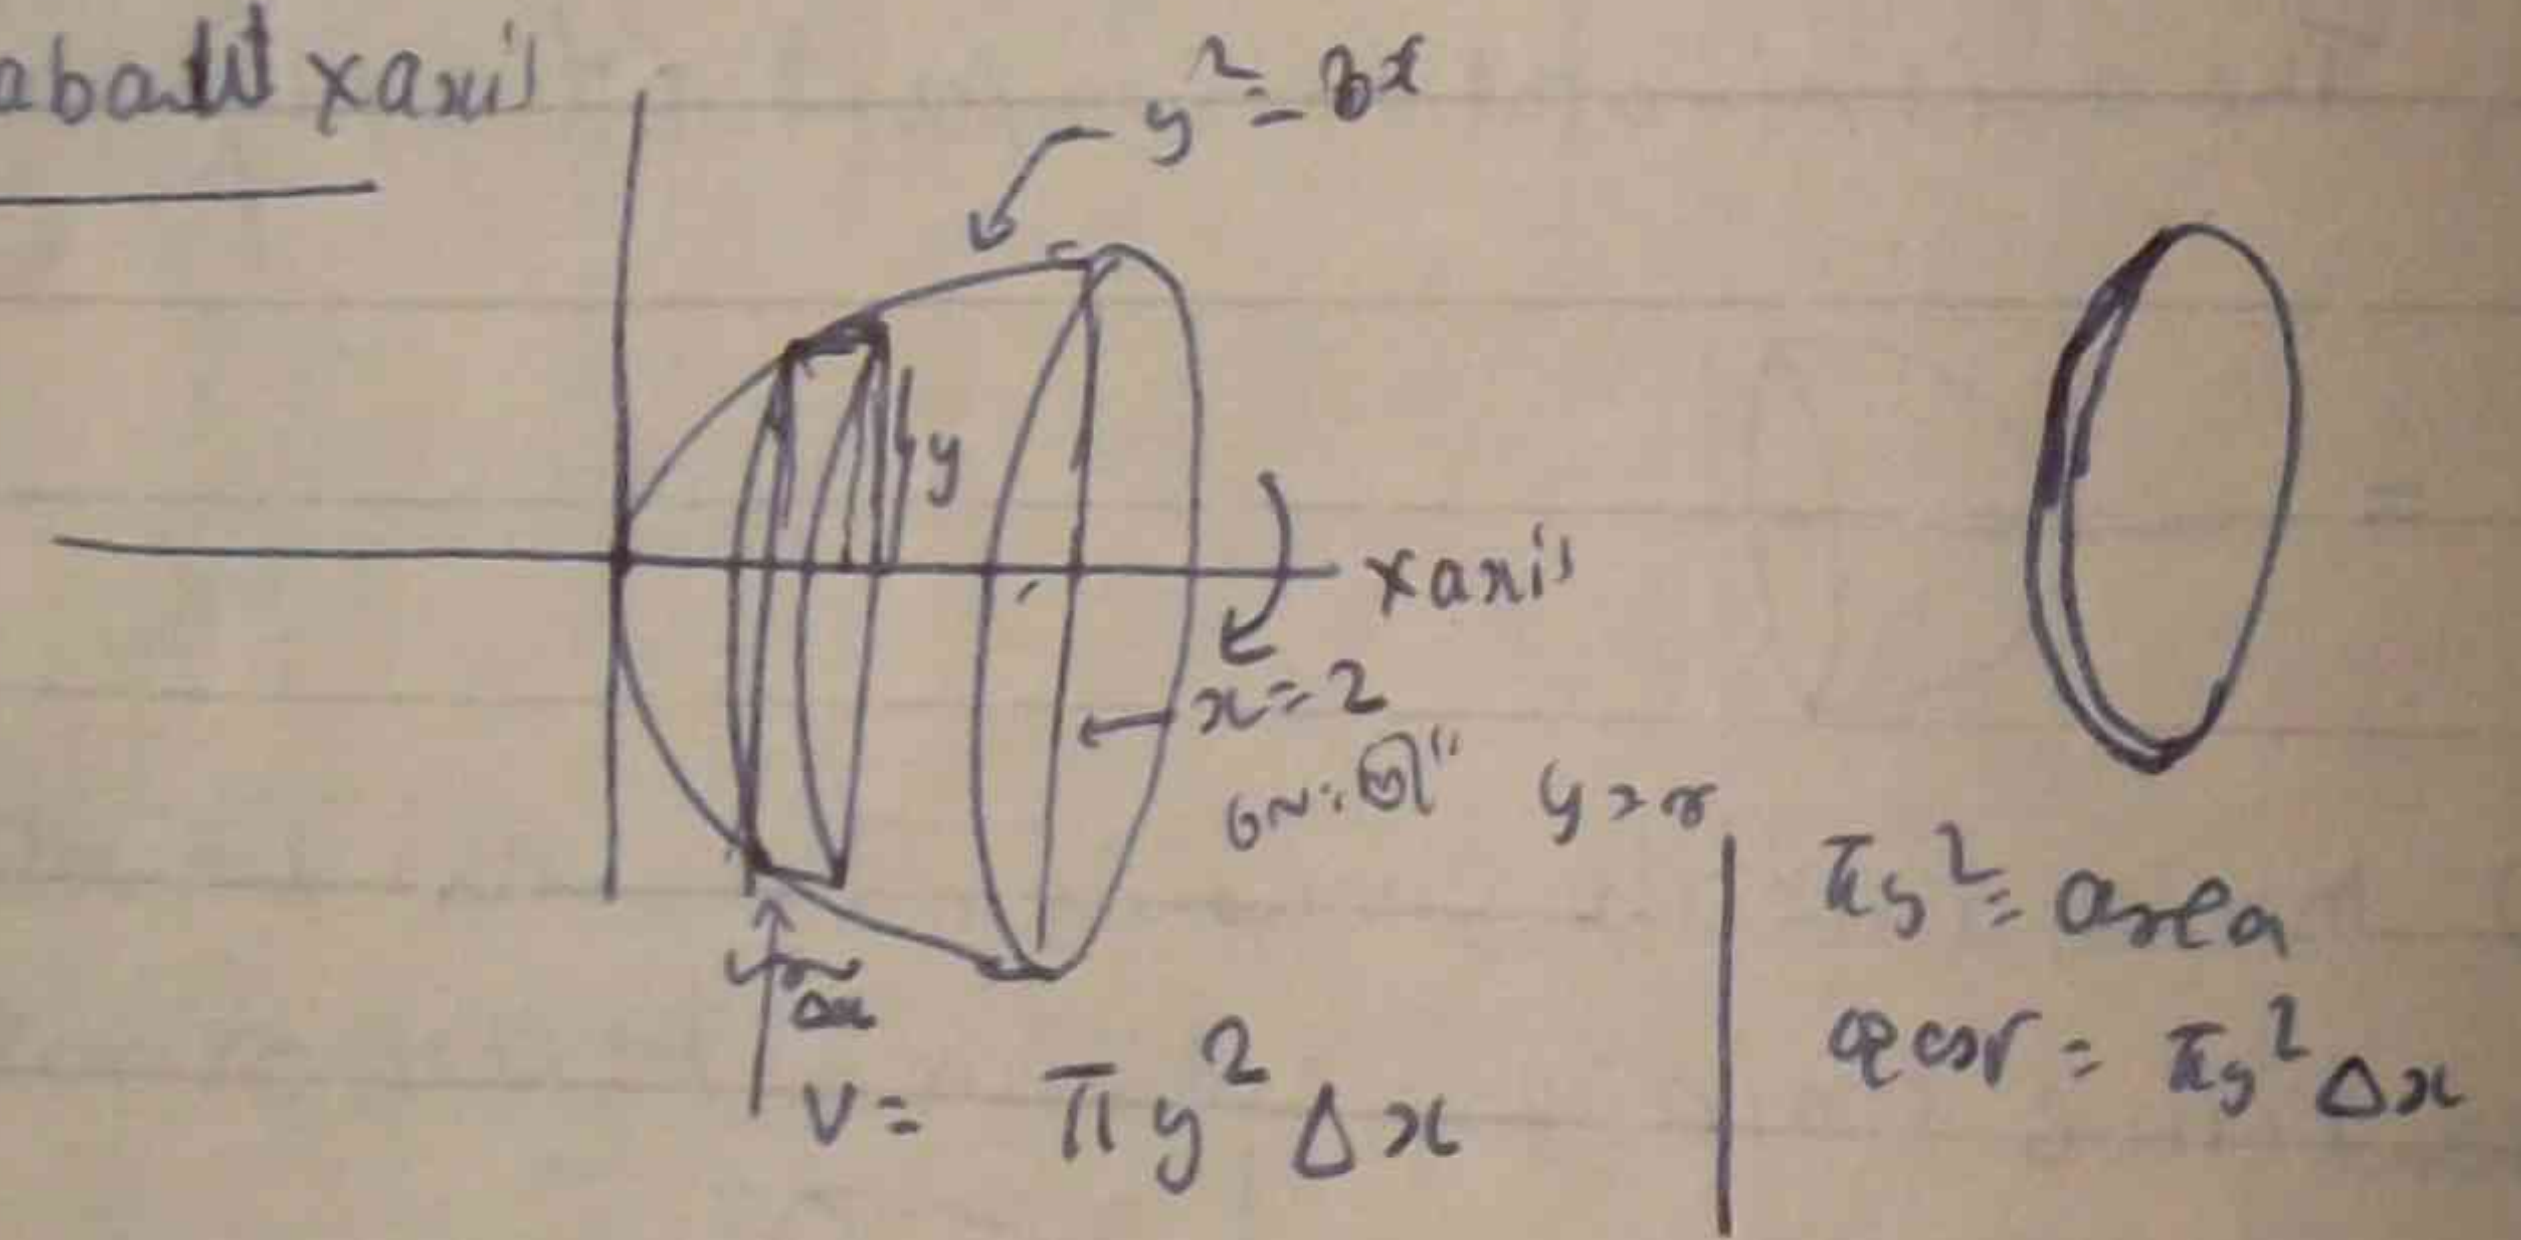 about x axis
y² = 8x
y
x axis
x = 2
y = r
Δx
V = πy² Δx
πy² = area
= πy² Δx